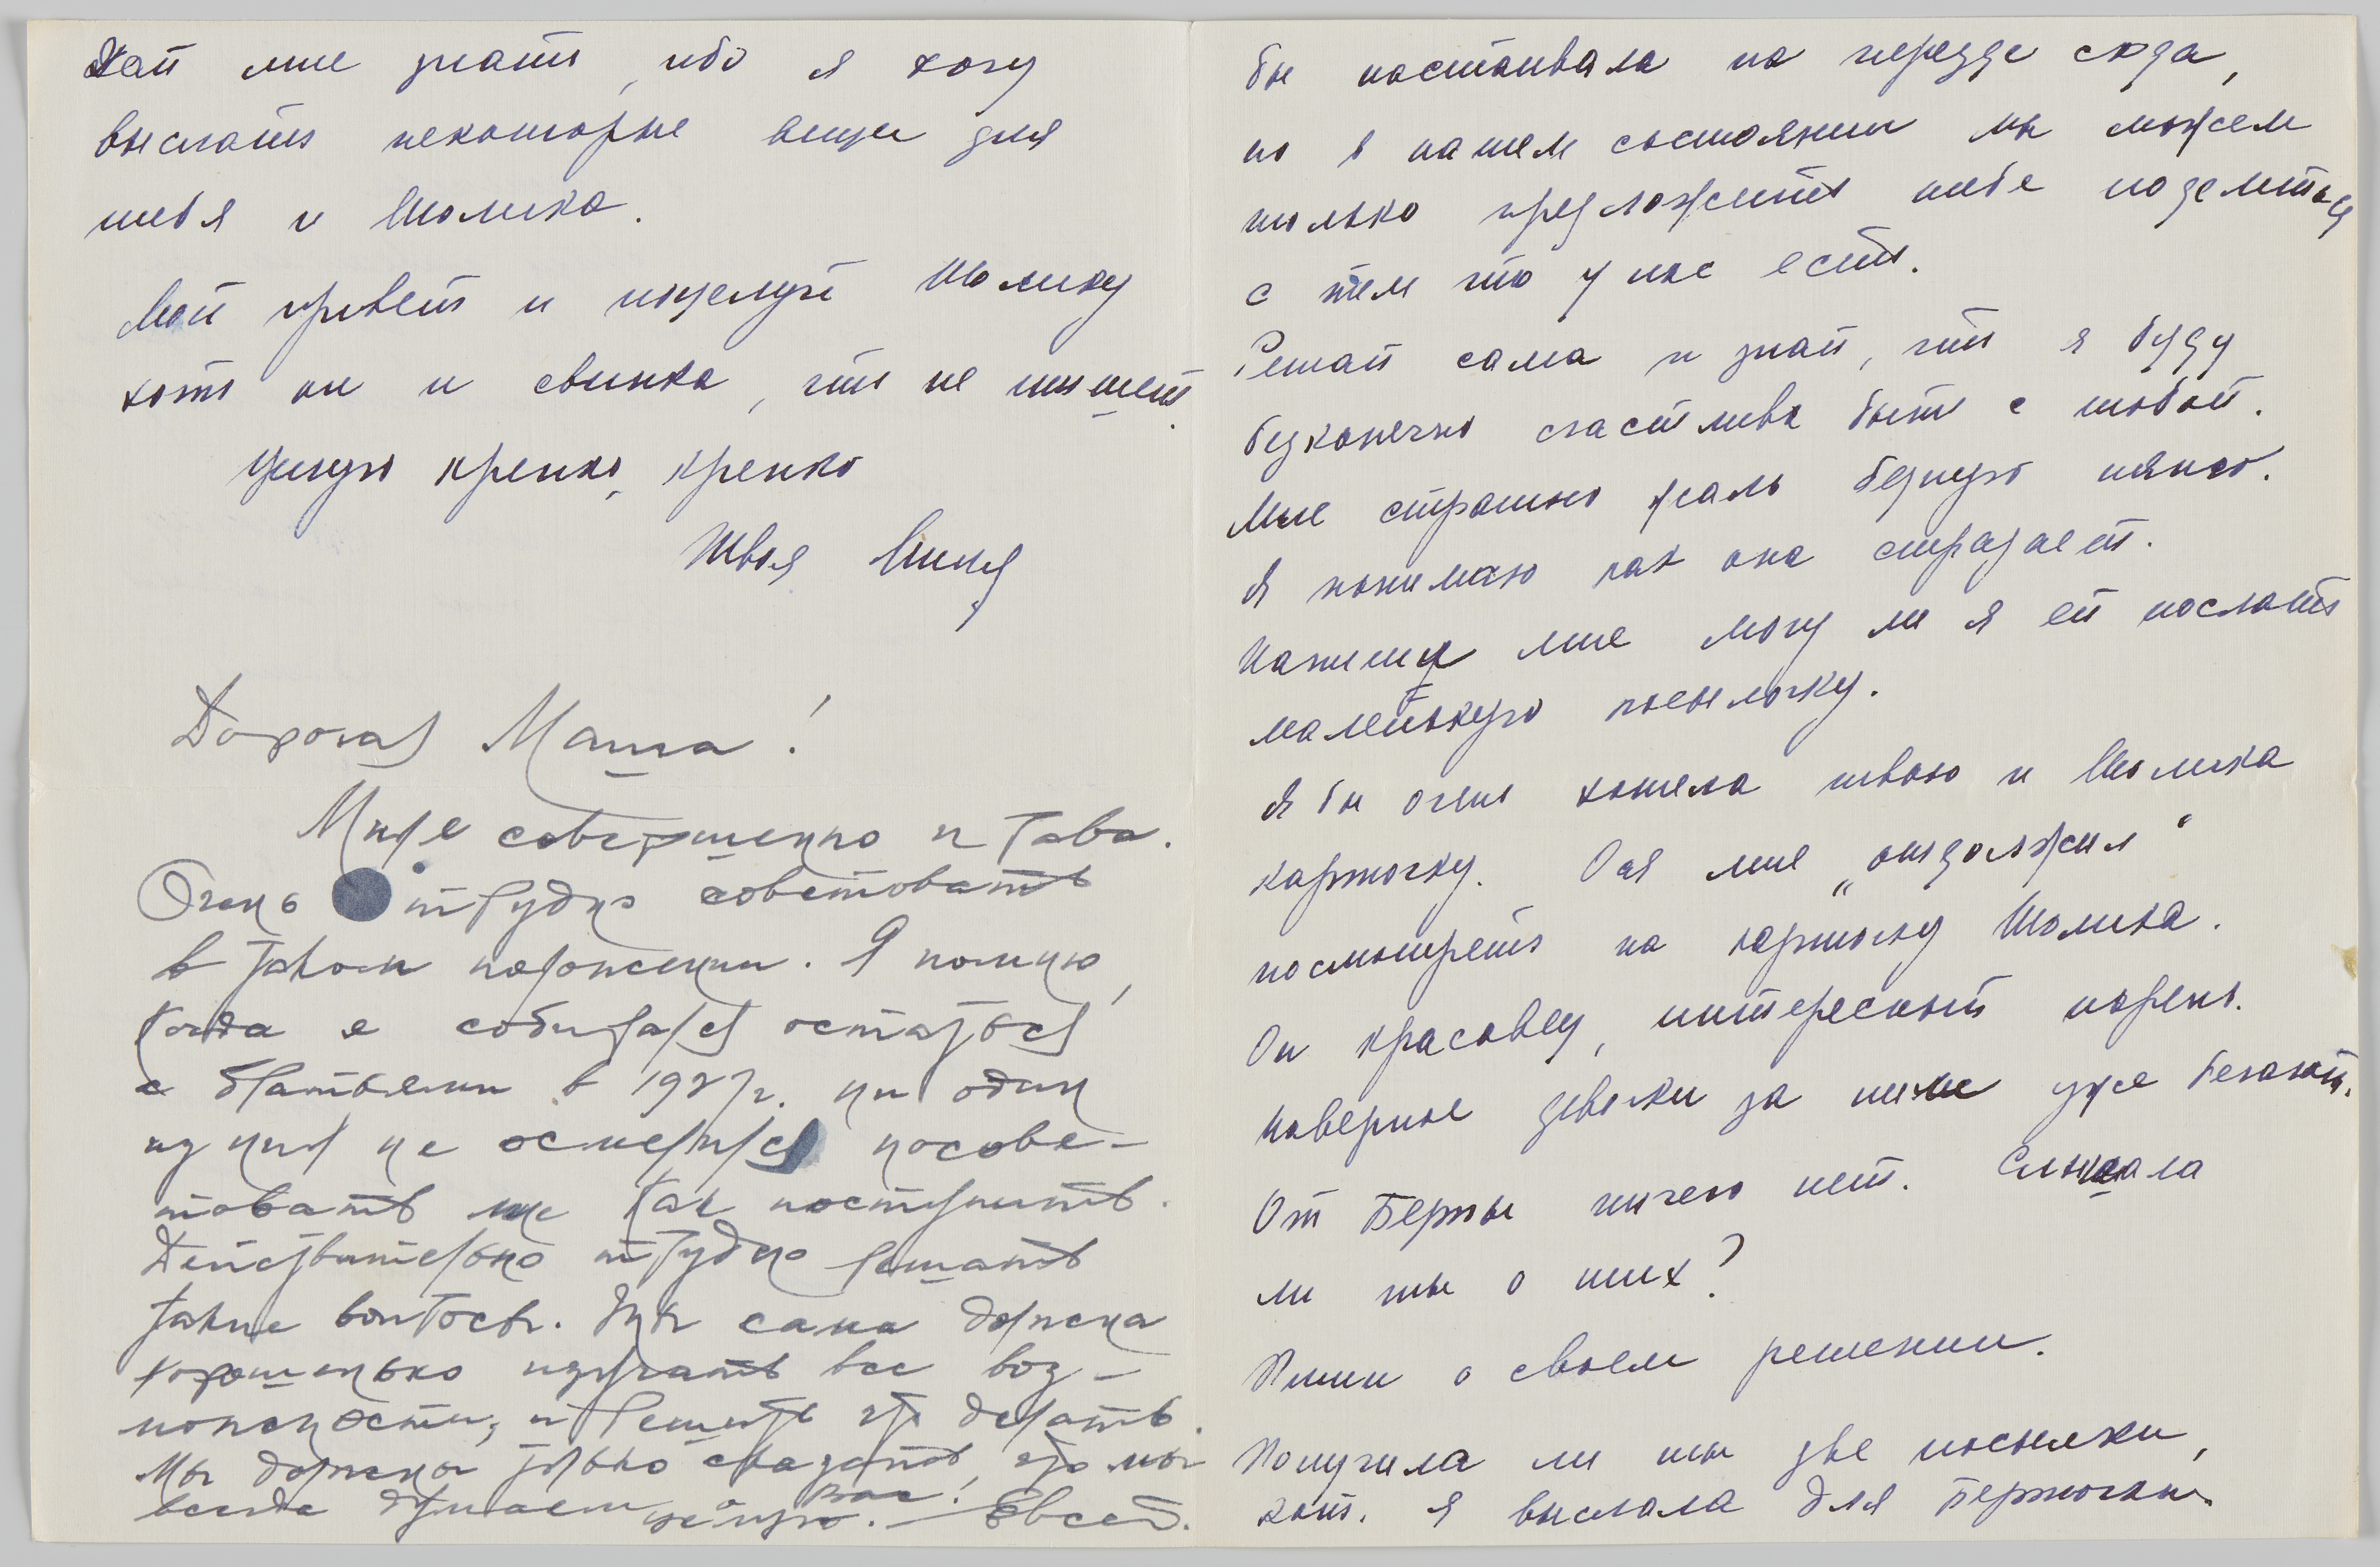 Дай мне знать, ибо я хочу
выслать некоторые вещи для
тебя и Шолика.
Мой привет и поцелуй Шолику
хоть он и свинка, что не пишет.
Целую крепко, крепко
Твоя Миня
Дорогая Маша!
Миня совершенно права.
Очень трудно советовать
в таком положении. Я помню,
когда я собирался остаться
с братьями в 1927г. ни один
из них не осмелился посове-
товать мне так поступить.
Действительно трудно решать
такие вопросы. Ты сама должна
хорошенько изучать все воз-
можности, и решить что делать.
Мы должны только сказать, что мы
всегда думаем о вас! Целую. — Евсей.
бы настаивала на переезде сюда,
но в нашем состоянии мы можем
только предложить тебе поделиться
с тем что у нас есть.
Решай сама и знай, что я буду
безконечно счастлива быть с тобой.
Мне страшно жаль бедную няню.
Я понимаю как она страдает.
Напиши мне могу ли я ей послать
маленькую посылочку.
Я бы очень хотела твою и Шолика
карточку. Ося мне „отдолжил“
посмотреть на карточку Шолика.
Он красавец, интересный парень.
Наверное девочки за ним уже бегают.
От Берты ничего нет. Слыхала
ли ты о них?
Пиши о своем решении.
Получила ли ты две посылки,
кот. я выслала для Берточки.